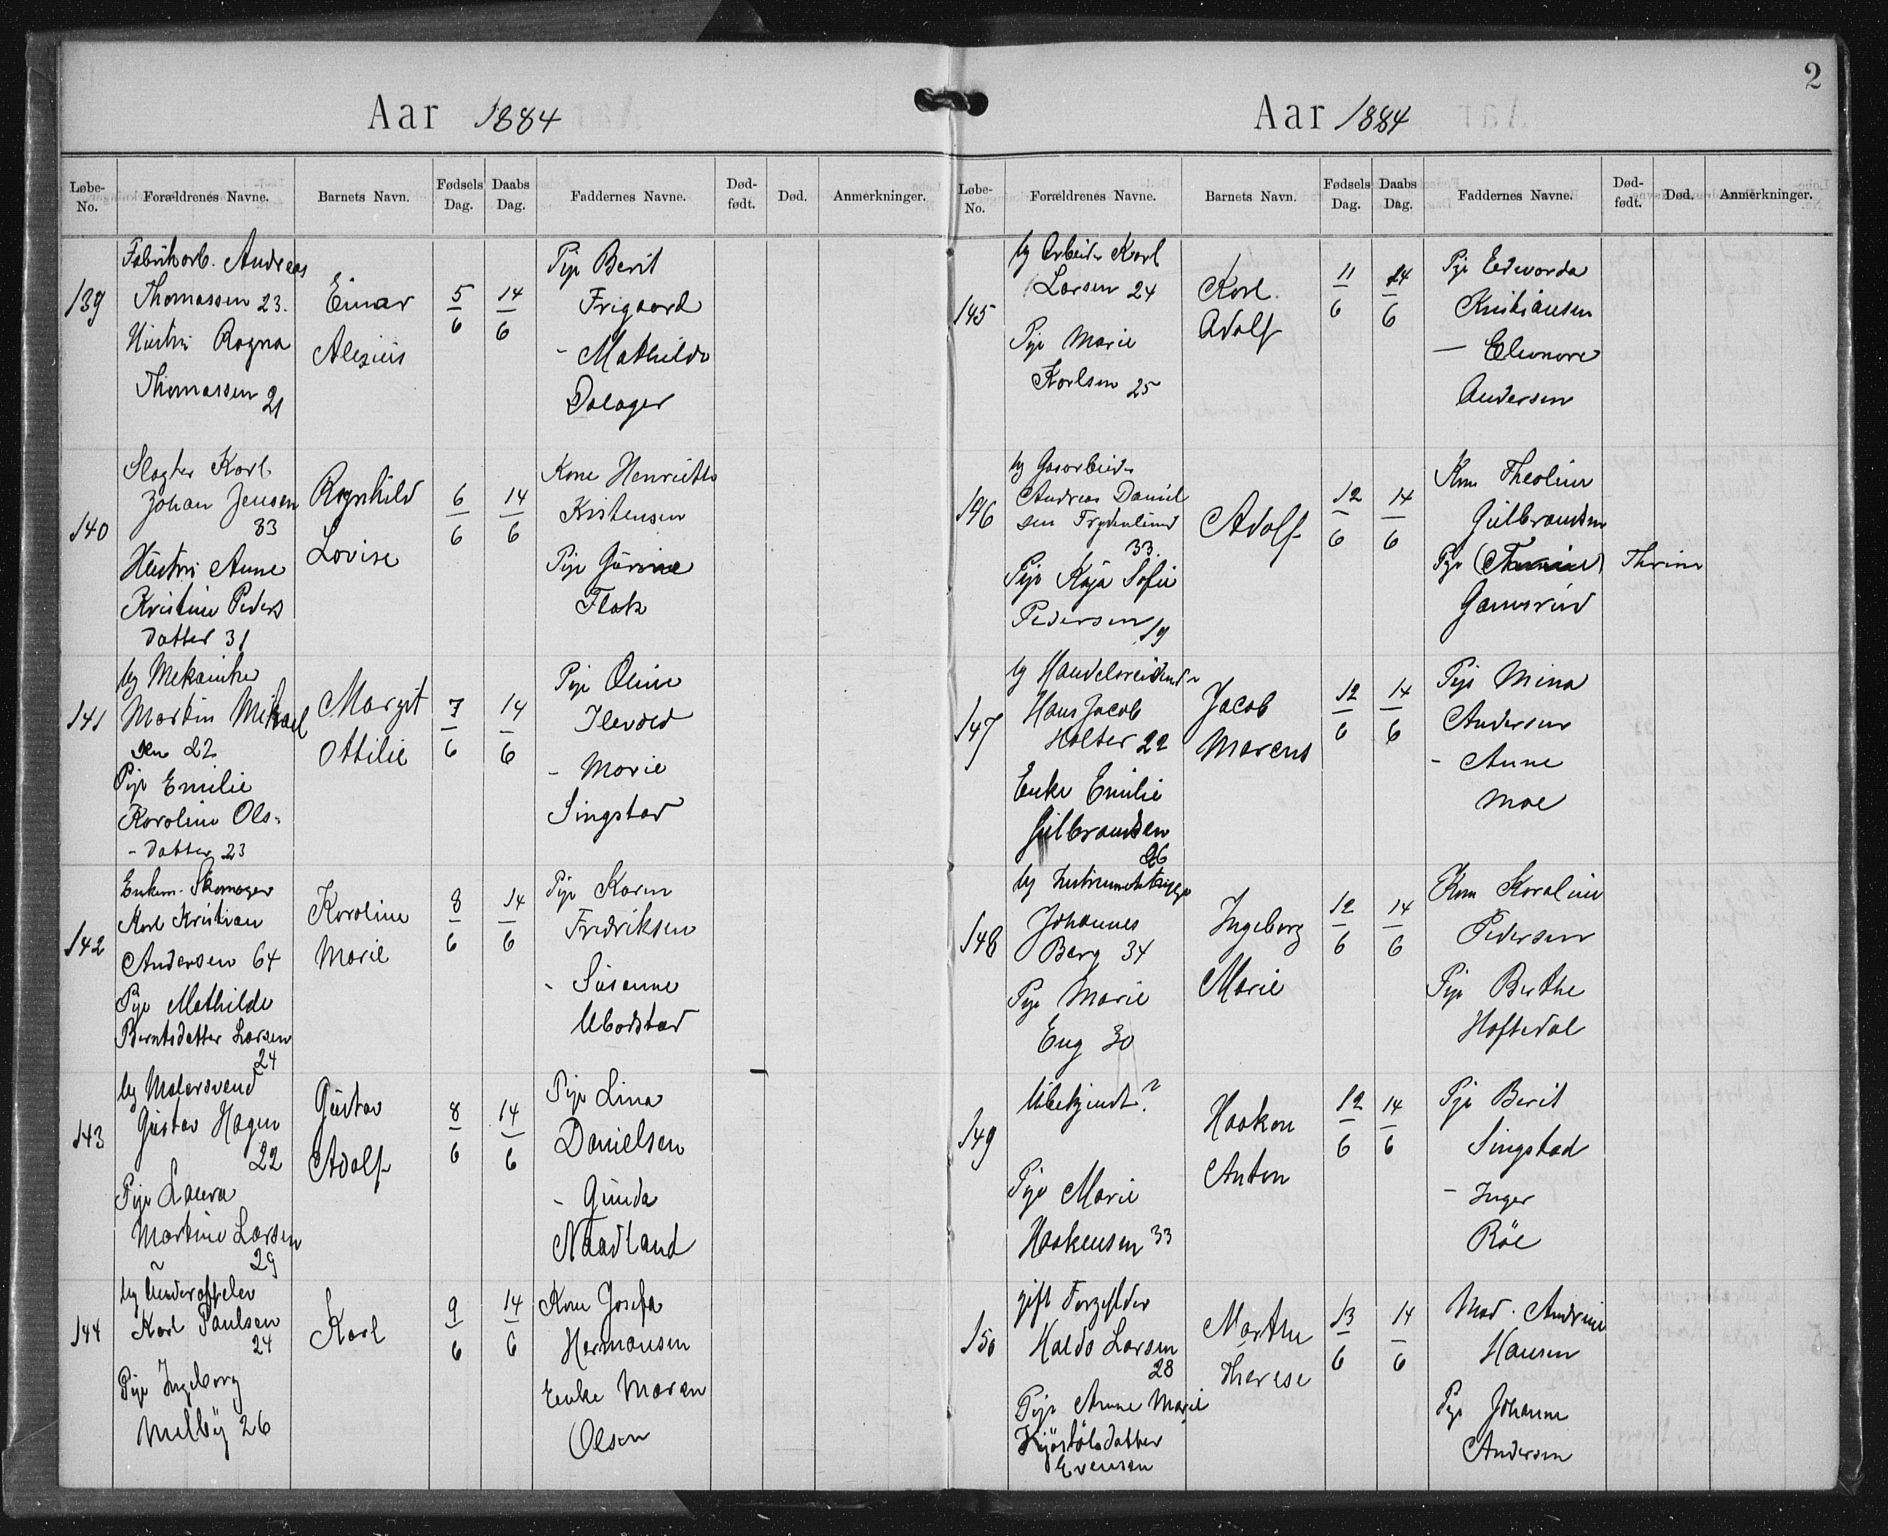 2
Aar 1884
Løbe-No. Forældrenes Navne. Barnets Navn. Fødsels Dag. Daabs Dag. Faddernes Navne. Død-født. Død. Anmerkninger.
139
Fabrikarb. Andreas
Thomassen 23.
Hustru Ragna
Thomassen 21
Einar
Alexius
5/6
14/6
Pige Berit
Frigaard
- Mathilde
Dalager
140
Slagter Karl
Johan Jensen
33
Hustru Anne
Kristine Peders
datter 31
Ragnhild
Lovise
6/6
14/6
Kone Henriette
Kristensen
Pige Gurine
Flak
141
Ug Mekaniker
Martin Mikael
sen 22
Pige Emilie
Karoline Ols-
- datter 23
Margit
Ottilie
7/6
14/6
Pige Oline
- Marie
Singstad
142
Enkem. Skomager
Karl Kristian
Andersen 64
Pige Mathilde
Berntsdatter Larsen
24
Karoline
Marie
8/6
14/6
Pige Karen
Fredriksen
- Susanne
143
Ug Malersvend
Gustav Hagen
22
Pige Laura
Martine Larsen
29
Gustav
Adolf
8/6
14/6
Pige Lina
Danielsen
- Gunda
Naadland
144
Ug Underoffelev
Karl Paulsen
24
Pige Ingeborg
Melby 26
Karl
9/6
14/6
Kone Josefa
Hermansen
Enke Maren
Olsen
Aar 1884
Løbe-No. Forældrenes Navne. Barnets Navn. Fødsels Dag. Daabs Dag. Faddernes Navne. Død-født. Død. Anmerkninger.
145
Ug Arbeider Karl
Larsen 24
Pige Marie
Karlsen 25
Karl
Adolf
11/6
14/6
Pige Edvarda
Kristiansen
— Eleonore
Andersen
146
Ug Gasarbeider
Andreas Daniel
sen Frydenlund
33.
Pige Kaja Sofie
Pedersen 19
Adolf
12/6
14/6
Kone Theoline
Gulbrandsen
Pige Thrine
147
Ug Handelsreisende
Hans Jacob
Holter 22
Enke Emilie
Gulbrandsen
26
Jacob
Marcus
12/6
14/6
Pige Mina
Andersen
- Anne
Moe
148
Ug Instrumentbygger
Johannes
Berg 34
Pige Marie
Eng 30
Ingeborg
Marie
12/6
14/6
Kone Karoline
Pedersen
Pige Berthe
Hoftedal
149
Ubekjendt?
Pige Marie
Haakensen 33
Haakon
Anton
12/6
14/6
Pige Berit
Singstad
- Inger
Röe
150
gift Forgylder
Haldo Larsen
28
Pige Anne Marie
Kjöstölsdatter
Evensen
Marthe
Therese
13/6
14/6
Mad. Andrine
Hansen
Pige Johanne
Andersen